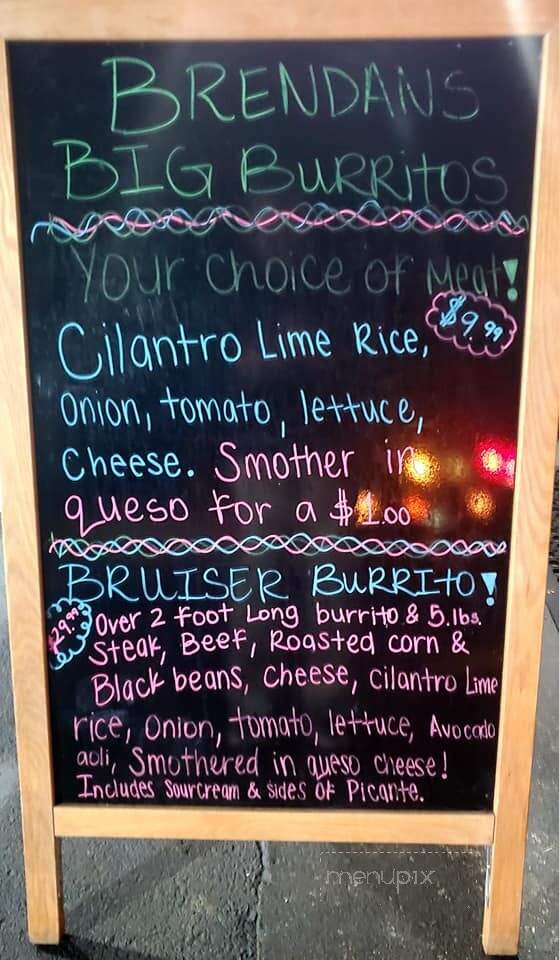 BRENDANS
BIG BURRITOS
Your choice of Meat!
$9.99
Cilantro Lime Rice,
Onion, tomato, lettuce,
Cheese. Smother in
queso for a $1.00
BRUISER BURRITO!
$29.99
Over 2 Foot Long burrito & 5.lbs.
Steak, Beef, Roasted corn &
Black beans, cheese, cilantro Lime
rice, onion, tomato, lettuce, Avocado
aoli, Smothered in queso cheese!
Includes Sourcream & sides of Picante.
menupix